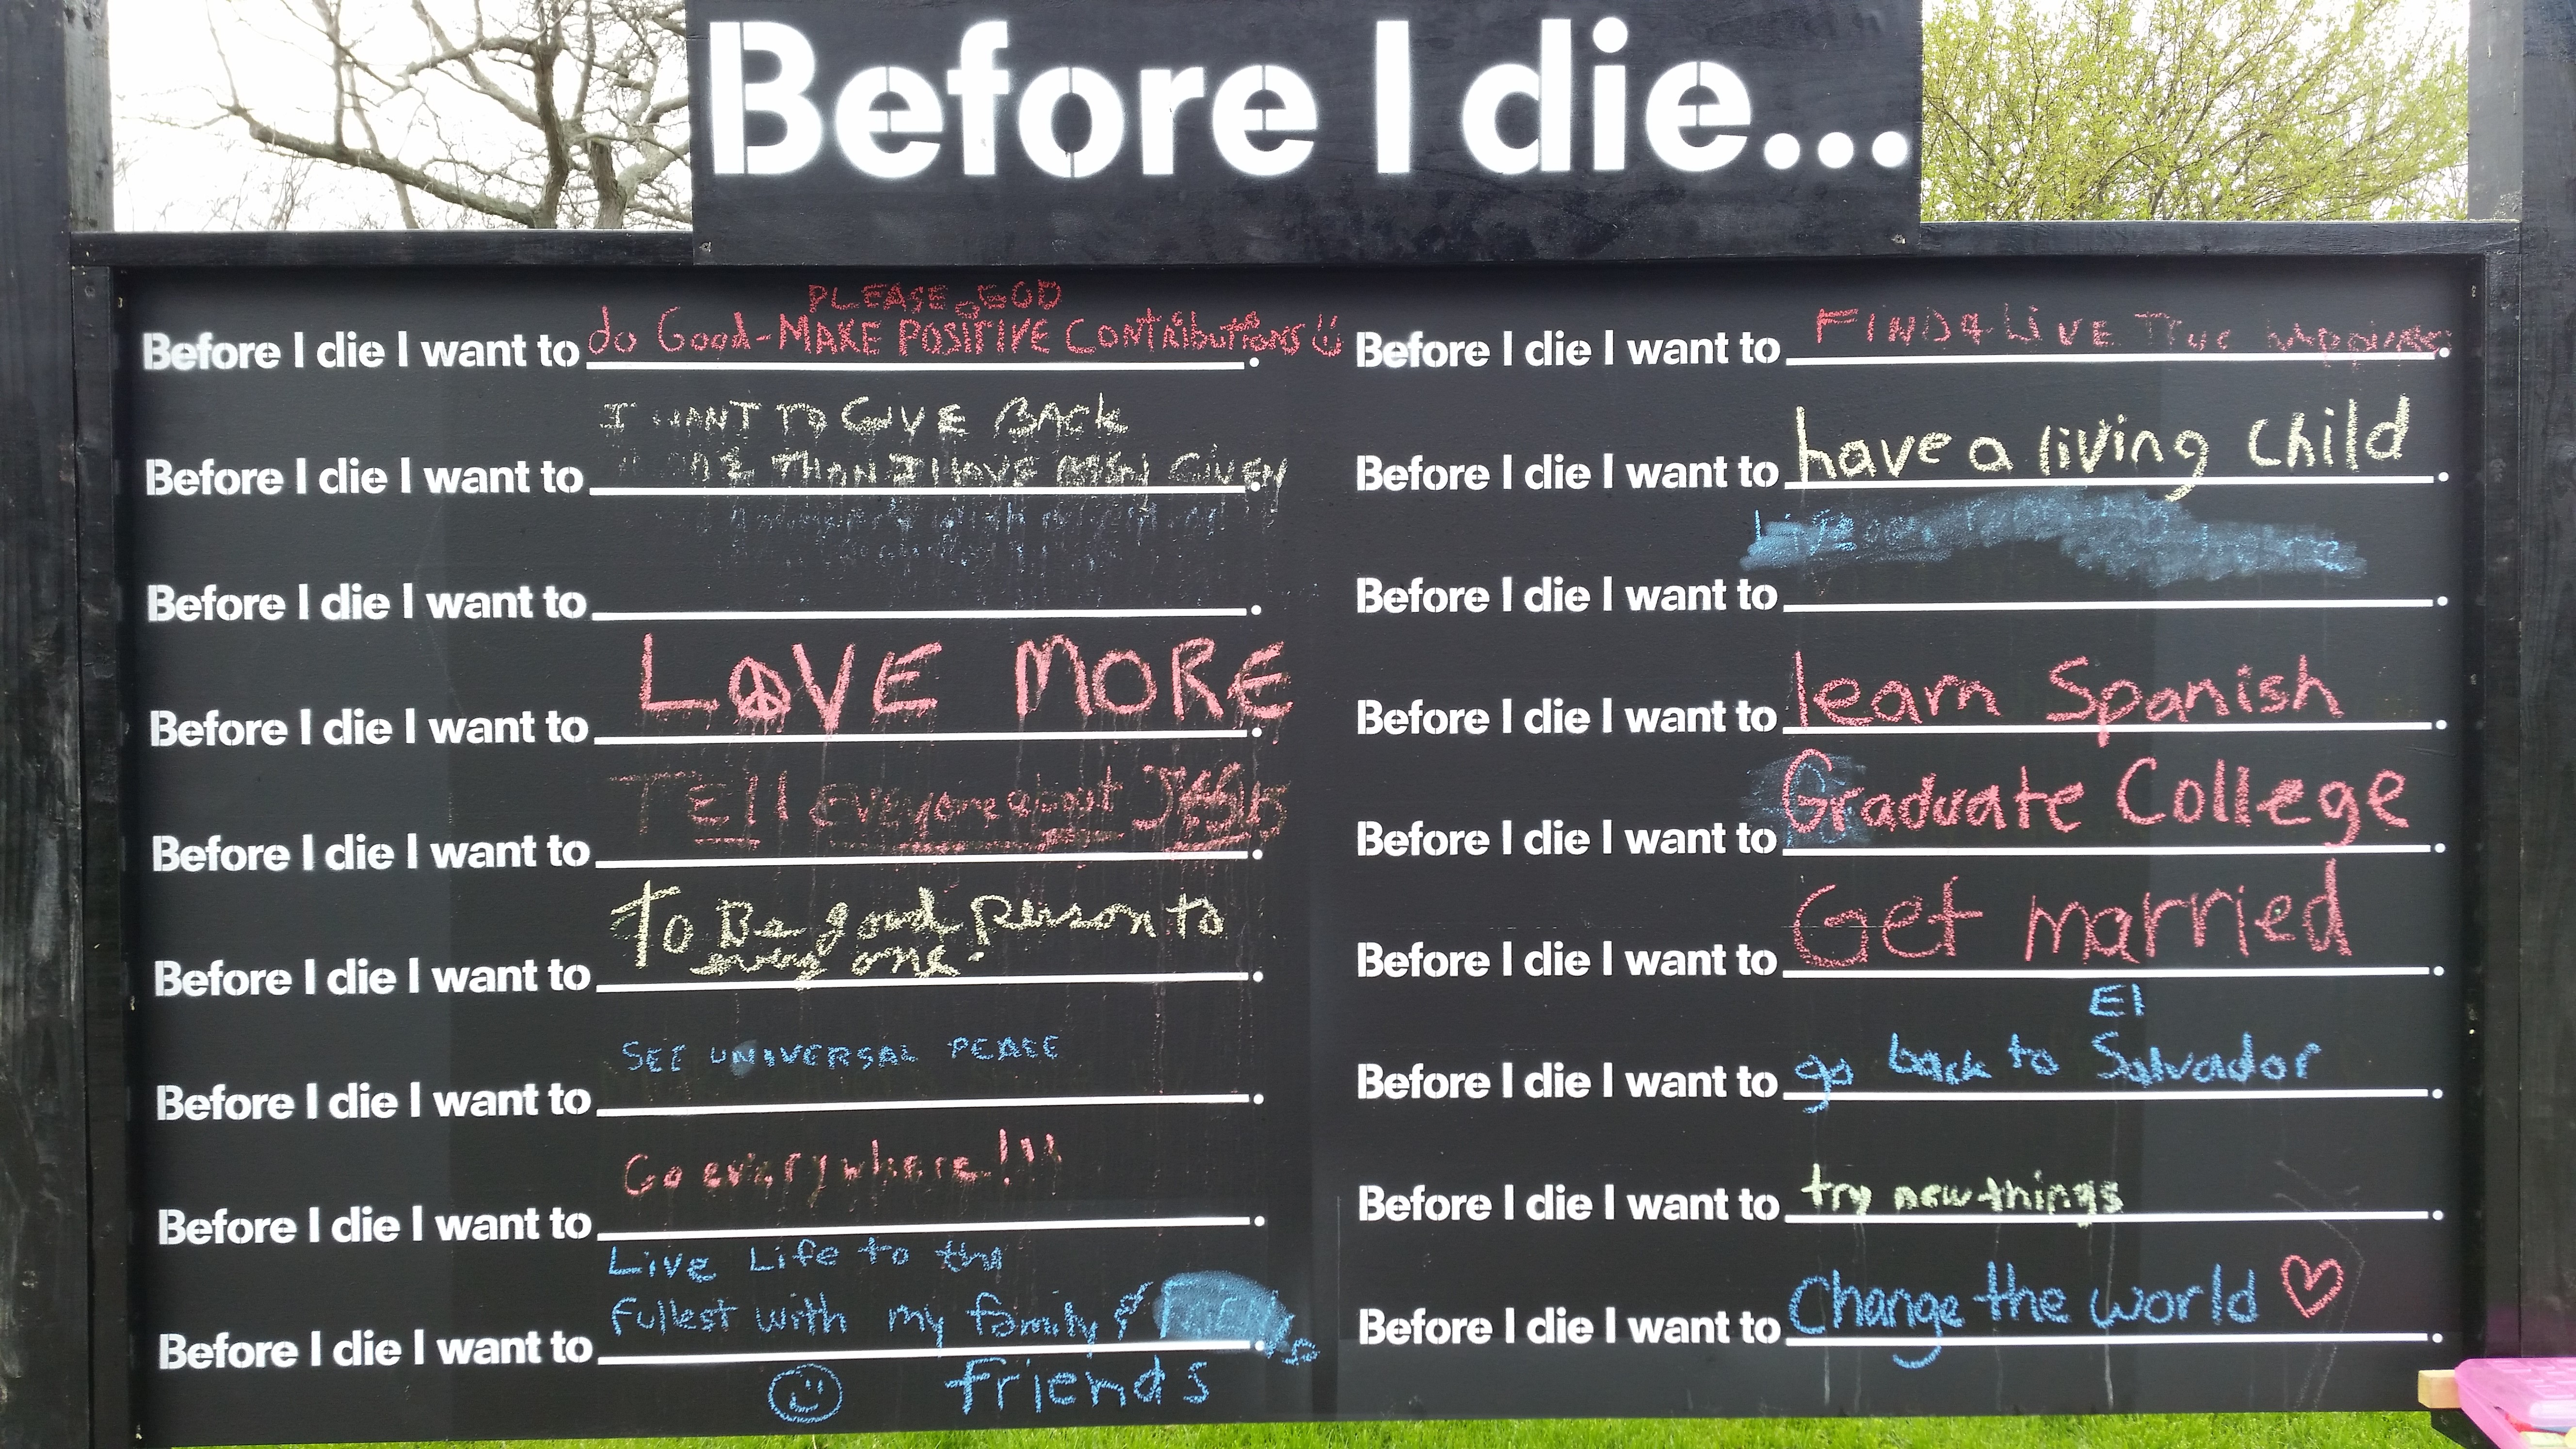 Before I die...
PLEASE GOD
Before I die I want to do Good-MAKE POSITIVE Contributions.
I WANT TO GIVE BACK
Before I die I want to THAN I HAVE BEEN GIVEN.
Before I die I want to .
Before I die I want to LOVE MORE.
Before I die I want to TEll Everyone about JESUS.
To Be good Person to
Before I die I want to every one..
SEE UNIVERSAL PEACE
Before I die I want to .
Go everywhere!!!
Before I die I want to .
Live Life to the
Fullest with my family &
Before I die I want to .
friends
Before I die I want to FIND & LiVE True happiness.
Before I die I want to have a living child.
Before I die I want to .
Before I die I want to learn Spanish.
Before I die I want to Graduate College.
Before I die I want to Get married.
El
Before I die I want to go back to Salvador.
Before I die I want to try new things.
Before I die I want to Change the world.